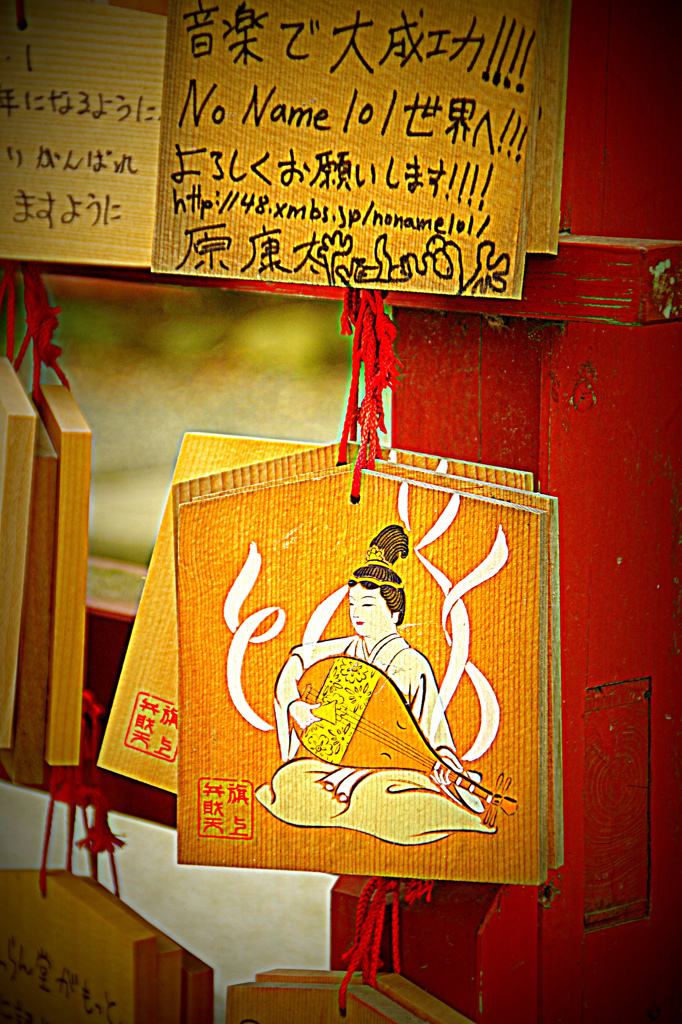 音楽で大成功!!!!
No Name 101 世界へ!!!
よろしくお願いします!!!!
http://48.xmbs.jp/noname101/
原 康太
年になるように
りがんばれ
ますように
旗上
弁財天
旗上
弁財天
らん堂がもっと